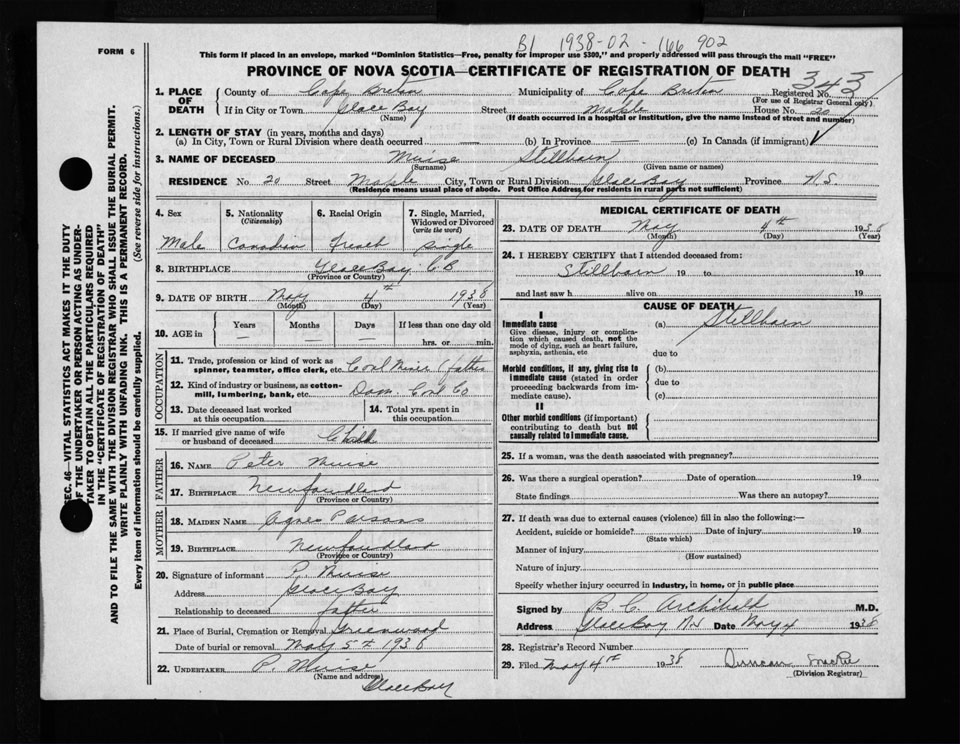 B1 1938-02-166 902
FORM 6
This form if placed in an envelope, marked "Dominion Statistics—Free, penalty for improper use $300," and properly addressed will pass through the mail "FREE"
PROVINCE OF NOVA SCOTIA—CERTIFICATE OF REGISTRATION OF DEATH
343
1. PLACE OF DEATH
County of Cape Breton Municipality of Cape Breton Registered No.
(For use of Registrar General only)
If in City or Town Glace Bay Street Maple House No. 20
(Name) (If death occurred in a hospital or institution, give the name instead of street and number)
2. LENGTH OF STAY (in years, months and days)
(a) In City, Town or Rural Division where death occurred — (b) In Province — (c) In Canada (if immigrant) ✓
3. NAME OF DECEASED Muise Stillborn
(Surname) (Given name or names)
RESIDENCE No. 20 Street Maple City, Town or Rural Division Glace Bay Province N.S.
(Residence means usual place of abode. Post Office Address, for residents in rural parts not sufficient)
4. Sex
Male
5. Nationality
(Citizenship)
Canadian
6. Racial Origin
French
7. Single, Married, Widowed or Divorced
(write the word)
Single
8. BIRTHPLACE Glace Bay CB
(Province or Country)
9. DATE OF BIRTH May 4th 1938
(Month) (Day) (Year)
10. AGE in Years Months Days If less than one day old
— — — hrs. or min.
OCCUPATION
11. Trade, profession or kind of work as
spinner, teamster, office clerk, etc. Coal Miner (father
12. Kind of industry or business, as cotton-
mill, lumbering, bank, etc. Dom. Coal Co
13. Date deceased last worked
at this occupation
14. Total yrs. spent in
this occupation
15. If married give name of wife
or husband of deceased Child
FATHER
16. NAME Peter Muise
17. BIRTHPLACE Newfoundland
(Province or Country)
MOTHER
18. MAIDEN NAME Agnes Parsons
19. BIRTHPLACE Newfoundland
(Province or Country)
20. Signature of informant P. Muise
Address Glace Bay
Relationship to deceased father
21. Place of Burial, Cremation or Removal Greenwood
Date of burial or removal May 5th 1938
22. UNDERTAKER P. Muise
(Name and address)
Glace Bay
MEDICAL CERTIFICATE OF DEATH
23. DATE OF DEATH May 4th 1938
(Month) (Day) (Year)
24. I HEREBY CERTIFY that I attended deceased from:
Stillborn 19 to 19
and last saw h alive on 19
CAUSE OF DEATH
I
Immediate cause
Give disease, injury or complica-
tion which caused death, not the
mode of dying, such as heart failure,
asphyxia, asthenia, etc
(a) Stillborn
due to
Morbid conditions, if any, giving rise to
immediate cause (stated in order
proceeding backwards from im-
mediate cause).
(b)
due to
(c)
II
Other morbid conditions (if important)
contributing to death but not
causally related to immediate cause.
25. If a woman, was the death associated with pregnancy?
26. Was there a surgical operation? Date of operation 19
State findings Was there an autopsy?
27. If death was due to external causes (violence) fill in also the following:—
Accident, suicide or homicide? Date of injury 19
(State which)
Manner of injury
(How sustained)
Nature of injury
Specify whether injury occurred in industry, in home, or in public place
Signed by B. C. Archibald M.D.
Address Glace Bay NS Date May 4 1938
28. Registrar's Record Number
29. Filed May 4th 1938 Duncan
(Division Registrar)
SEC. 46—VITAL STATISTICS ACT MAKES IT THE DUTY
OF THE UNDERTAKER OR PERSON ACTING AS UNDER-
TAKER TO OBTAIN ALL THE PARTICULARS REQUIRED
IN THE "CERTIFICATE OF REGISTRATION OF DEATH"
AND TO FILE THE SAME WITH THE DIVISION REGISTRAR WHO SHALL ISSUE THE BURIAL PERMIT.
WRITE PLAINLY WITH UNFADING INK. THIS IS A PERMANENT RECORD.
Every item of information should be carefully supplied. (See reverse side for instructions.)